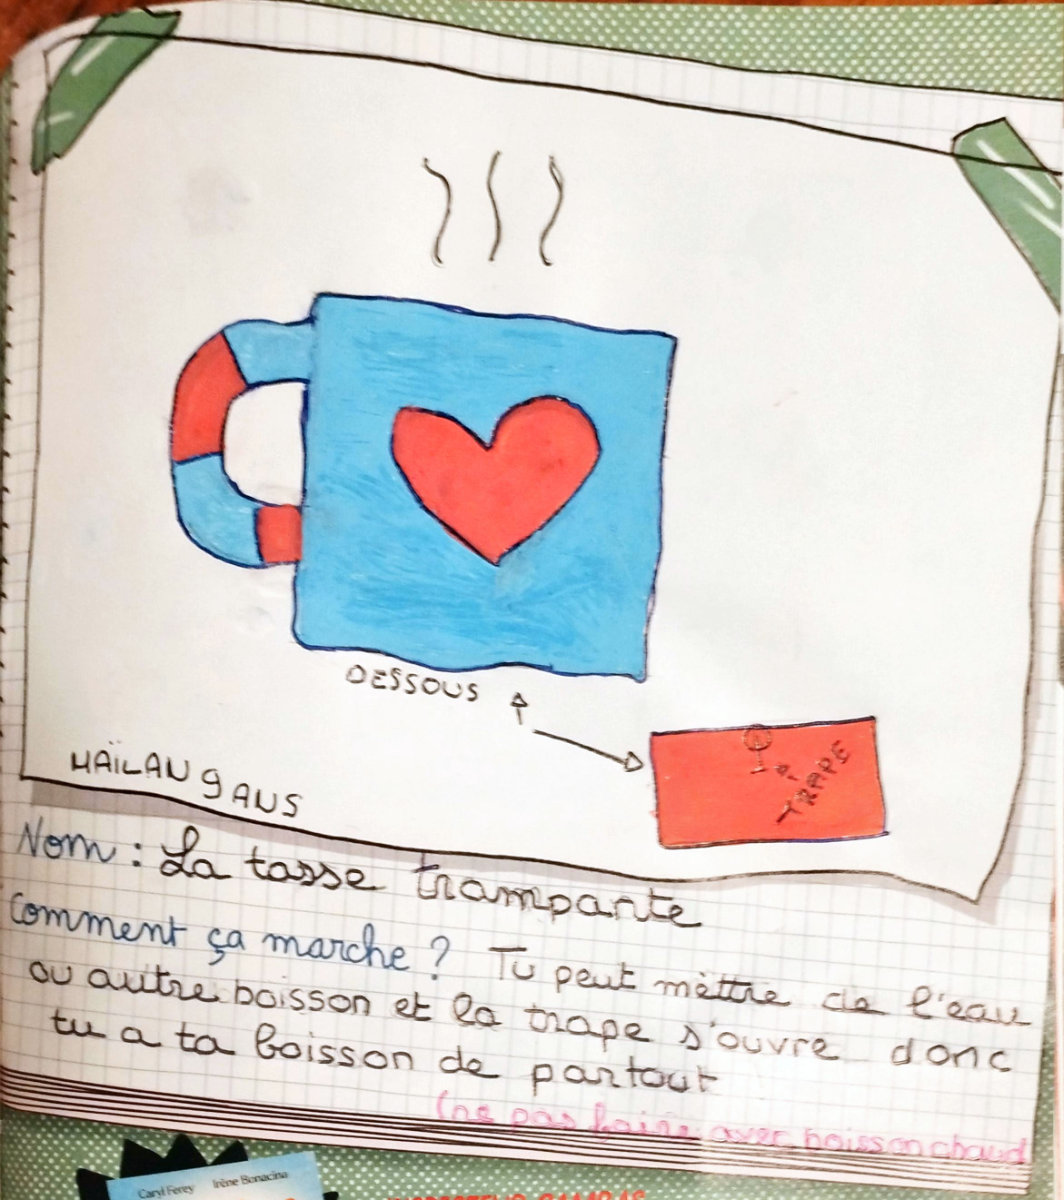 DESSOUS
TRAPE
HAÏLAN 9 ANS
Nom : La tasse trampante
Comment ça marche ? Tu peut mèttre de l'eau
ou autre boisson et la trape s'ouvre donc
tu a ta boisson de partout
(ne pas faire avec boisson chaud
Caryl Ferey Irène Bonacina